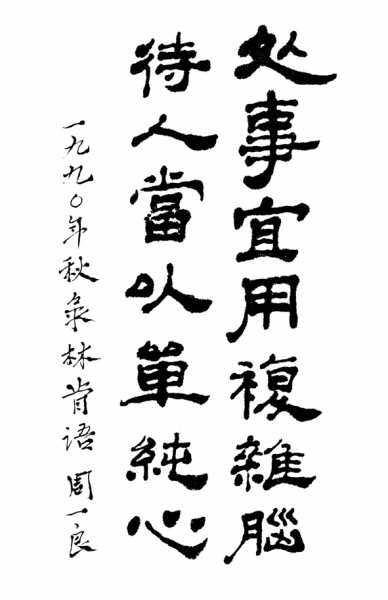 处事宜用複雜腦
待人當以單純心
一九九〇年秋录林肯语 周一良